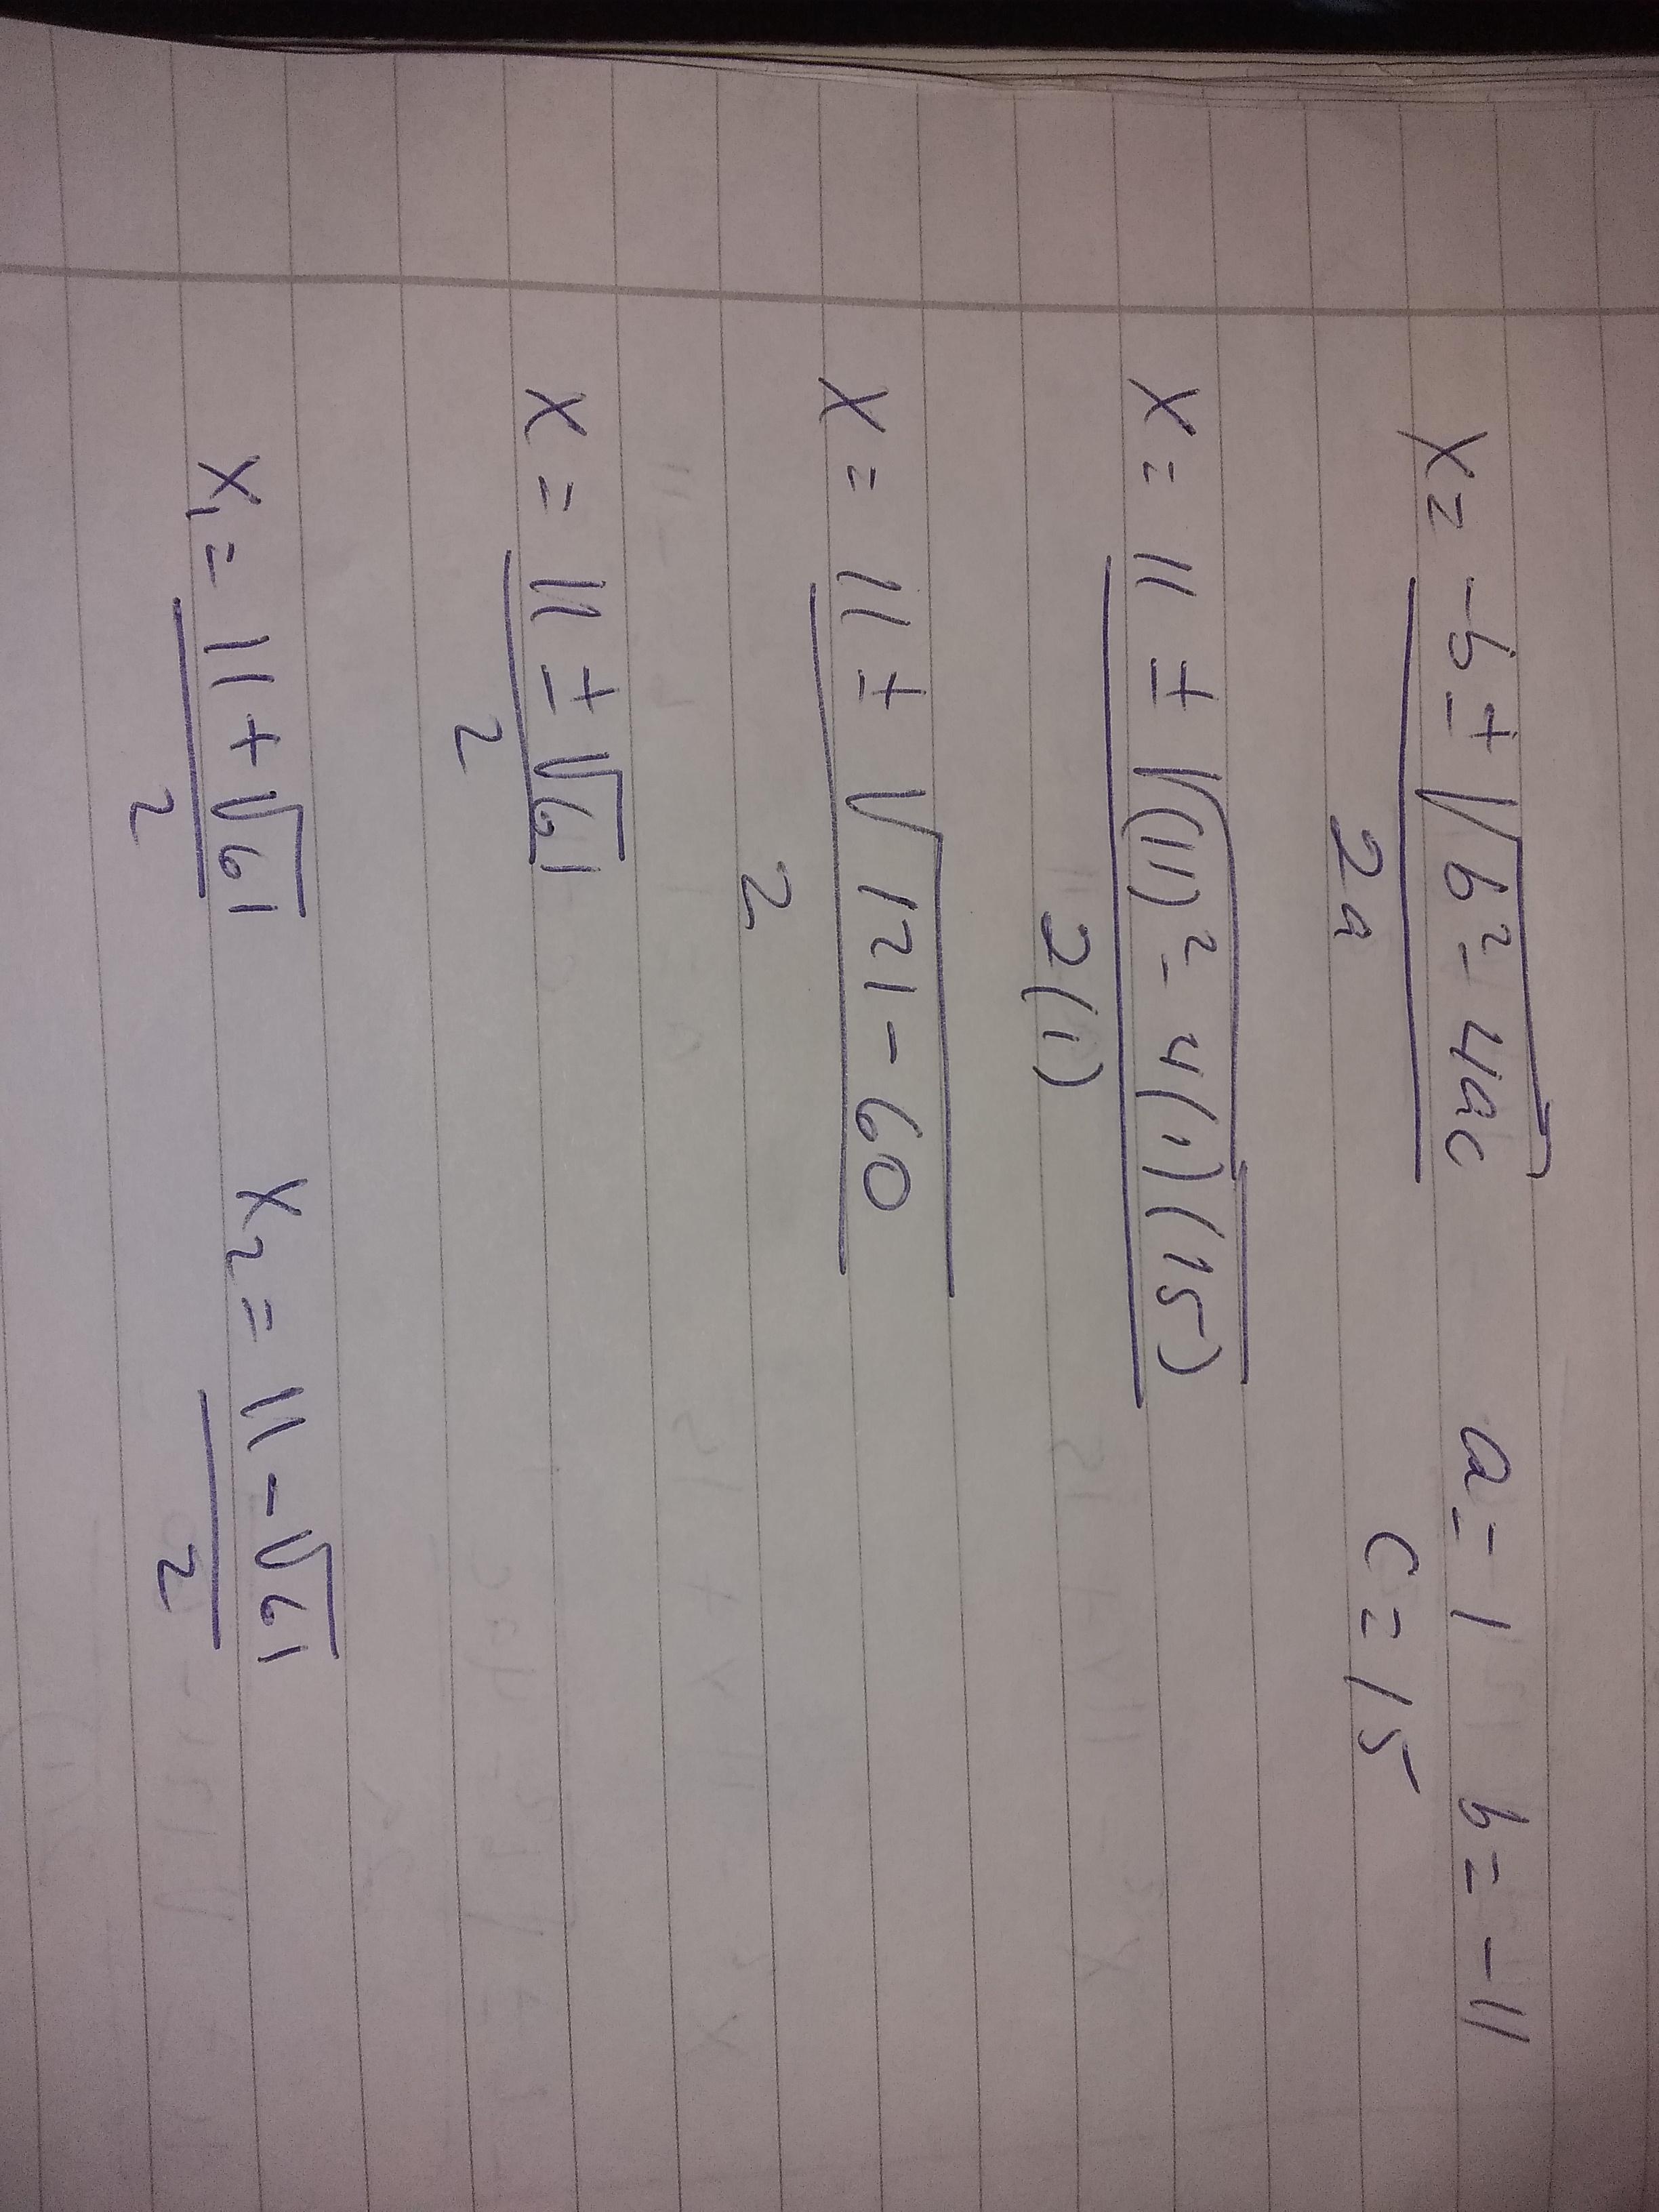 x = -b ± √b² - 4ac a = 1 b = -11
2a c = 15
x = 11 ± √(11)² - 4(1)(15)
2(1)
x = 11 ± √121 - 60
2
x = 11 ± √61
2
x₁ = 11 + √61 x₂ = 11 - √61
2 2